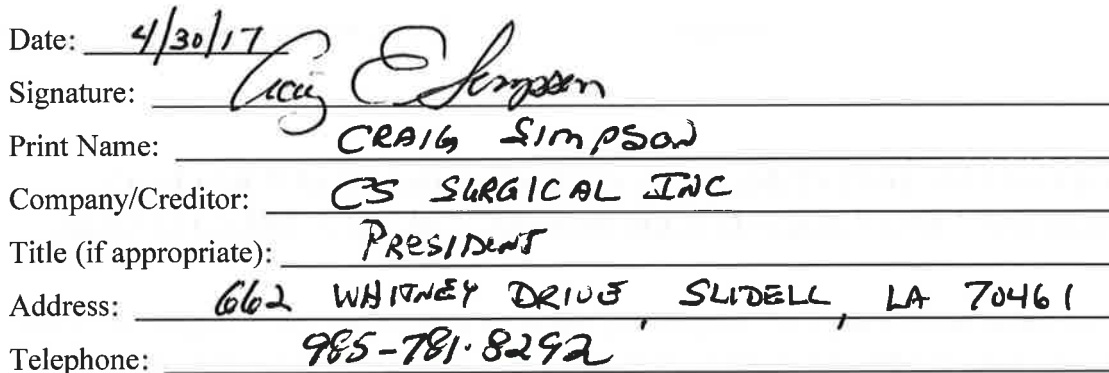 Date: 4/30/17
Signature: Craig E Simpson
Print Name: CRAIG SIMPSON
Company/Creditor: CS SURGICAL INC
Title (if appropriate): PRESIDENT
Address: 662 WHITNEY DRIVE, SLIDELL, LA 70461
Telephone: 985-781-8292